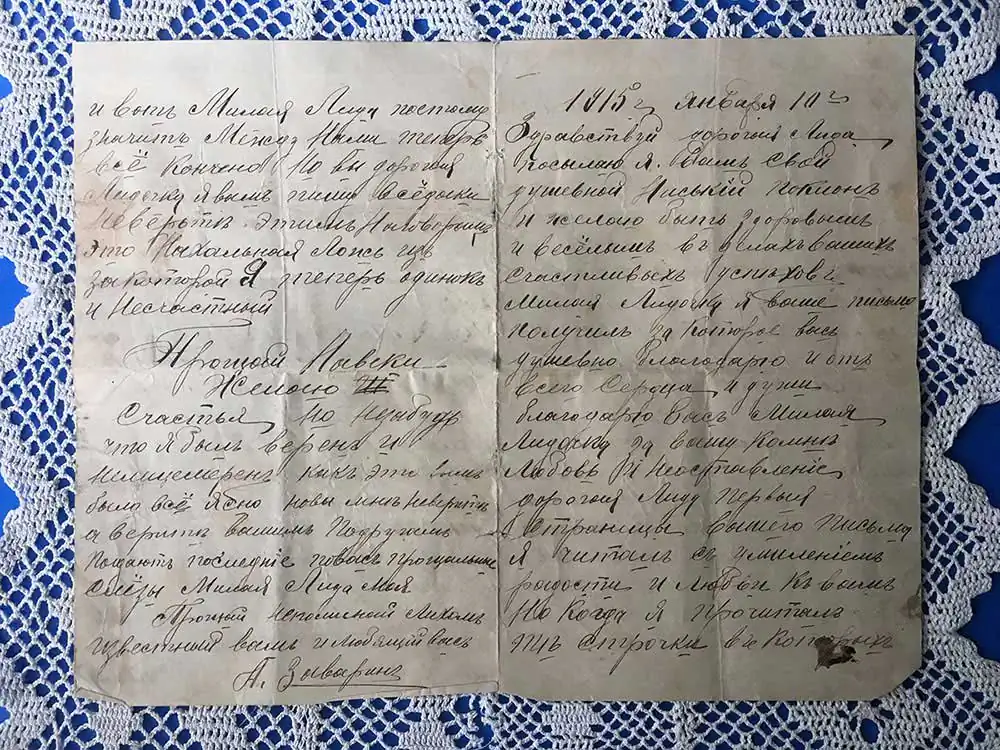 и вотъ Милая Лида поетому
значитъ Между Нами теперь
всё кончено Но вы дорогая
Лидочка я вамъ пишу всёдаки
Неверьте этимъ Наговорамъ
это Нахальная Ложь изъ
закоторой Я теперь одинокъ
и Несчастный
Прощай Навеки
Желаю
Счастья Но незабудь
что Я былъ веренъ и
Нелицемеренъ какъ это вамъ
было всё Ясно новы мне неверите
а верите вашимъ Подружкамъ
последніе повасъ прощальные
слёзы Милая Лида моя
Прощай непоминай Лихомъ
Известный вамъ и любящий васъ
А. Заварин
1915 г Января 10 го
Здравствуй дорогая Лида
посылаю я Вамъ свой
душевной Ниській поклонъ
и желаю быть здоровымъ
и весёлымъ въ делахъ вашихъ
счастливыхъ успюхов
Милая Лидочка я ваше письмо
получилъ за которое васъ
душевно благодарю и отъ
всего Сердца и души
благодарю Васъ Милая
Лидочка за вашу Комне
Любовь И Неоставленіе
дорогая Лида Первыя
Страницы вашего письма
Я читалъ съ умиленіемъ
радости и любви къ вамъ
Но Когда я прочиталъ
те строчки въ Которыхъ